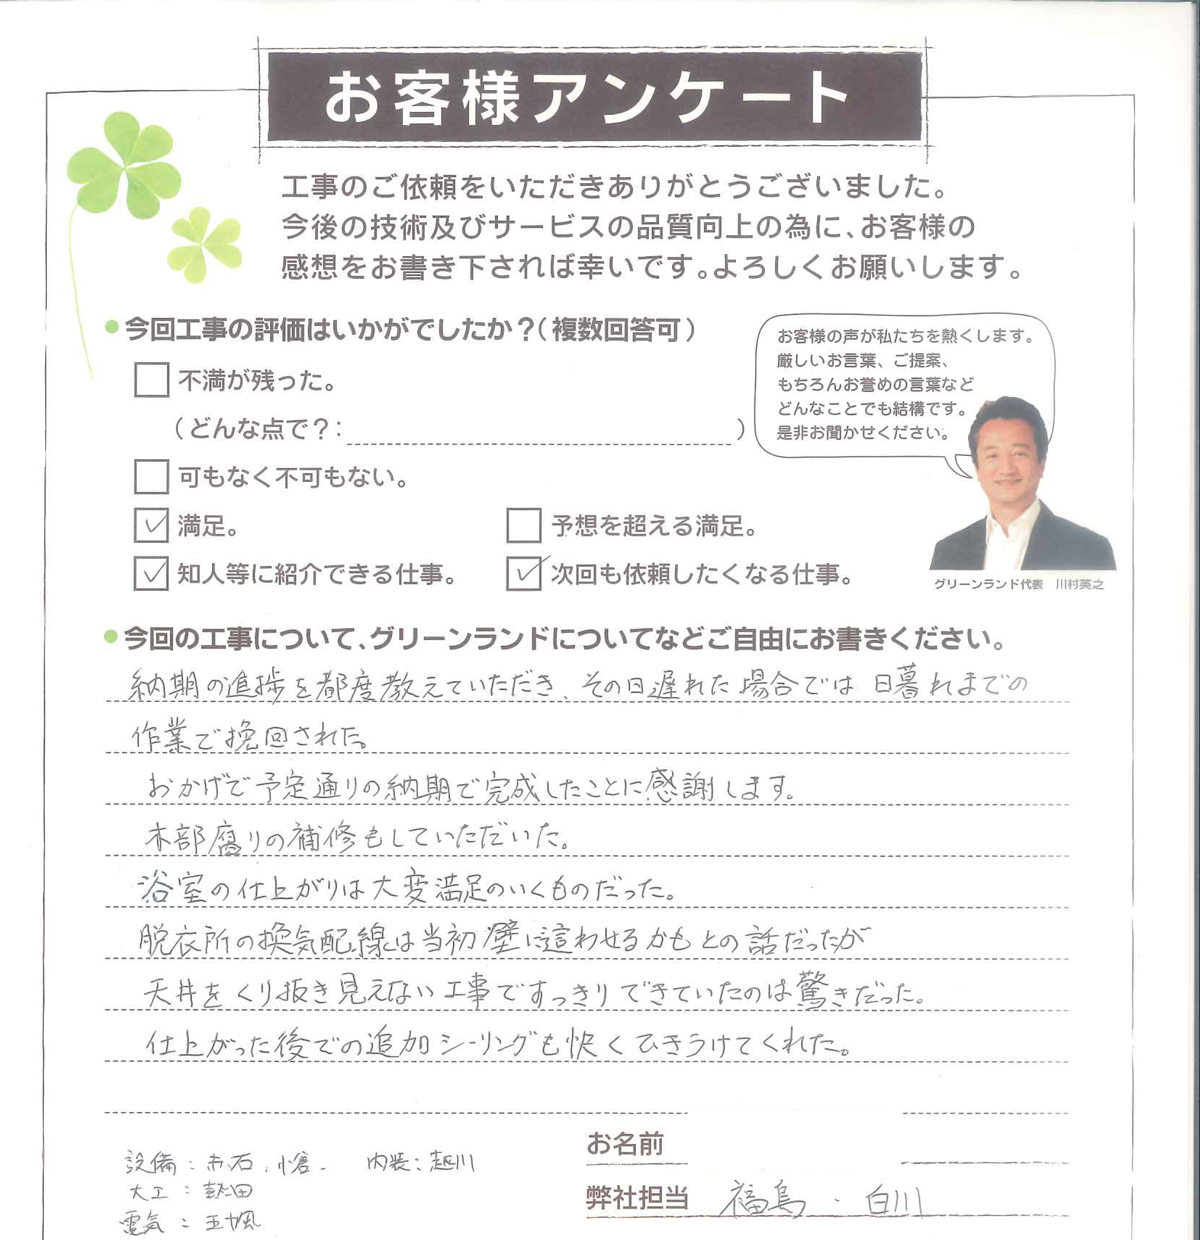 お客様アンケート
工事のご依頼をいただきありがとうございました。
今後の技術及びサービスの品質向上の為に、お客様の
感想をお書き下されば幸いです。よろしくお願いします。
今回工事の評価はいかがでしたか？（複数回答可）
不満が残った。
（どんな点で？：　）
可もなく不可もない。
満足。
予想を超える満足。
知人等に紹介できる仕事。
次回も依頼したくなる仕事。
お客様の声が私たちを熱くします。
厳しいお言葉、ご提案、
もちろんお誉めの言葉など
どんなことでも結構です。
是非お聞かせください。
グリーンランド代表　川村英之
今回の工事について、グリーンランドについてなどご自由にお書きください。
納期の進捗を都度教えていただき、その日遅れた場合では日暮れまでの
作業で挽回された。
おかげで予定通りの納期で完成したことに感謝します。
木部腐りの補修もしていただいた。
浴室の仕上がりは大変満足のいくものだった。
脱衣所の換気配線は当初壁に這わせるかもとの話だったが
天井をくり抜き見えない工事ですっきりできていたのは驚きだった。
仕上がった後での追加シーリングも快くひきうけてくれた。
設備：赤石、小倉.　内装：越川
大工：熱田
電気：五十嵐
お名前
弊社担当　福島・白川